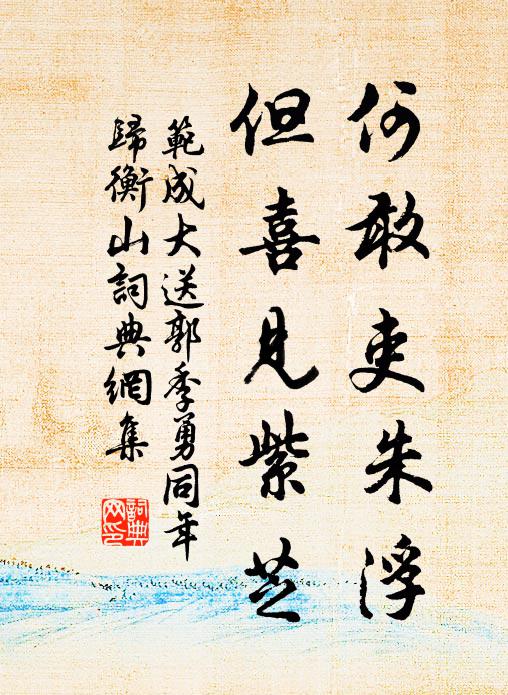 何敢吏朱浮
但喜見紫芝
範成大送郭季勇同年
歸衡山詞典網集
詞典
網印